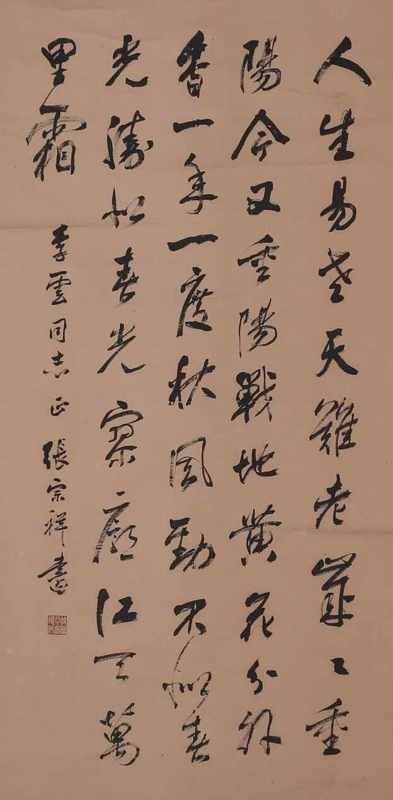 人生易老天難老歲々重
陽今又重陽戰地黃花分外
香一年一度秋風勁不似春
光勝似春光寥廓江天萬
里霜
李雲同志正 張宗祥書